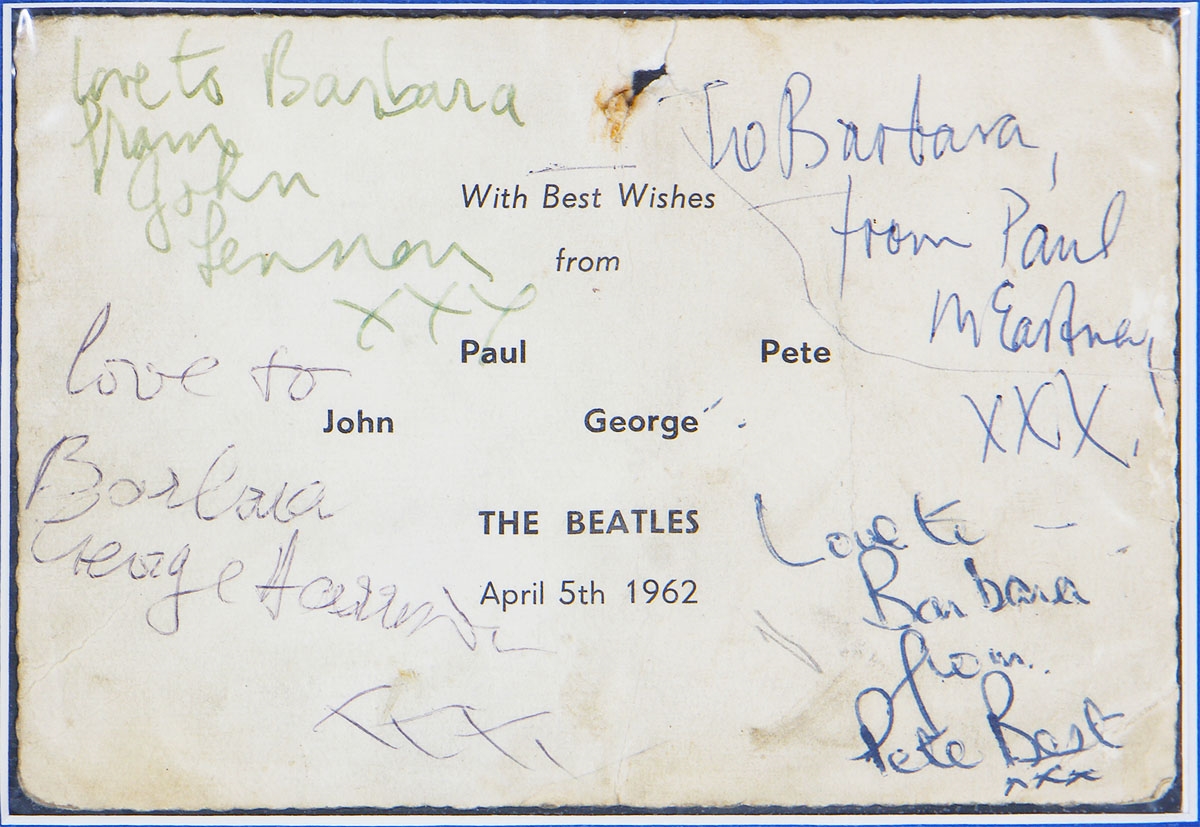 love to Barbara
from
John
Lennon
xxx
To Barbara,
from Paul
McCartney
XXX.
With Best Wishes
from
Paul Pete
John George
THE BEATLES
April 5th 1962
love to
Barbara
George Harrison
xxx
Love to
Barbara
from
Pete Best
xxx